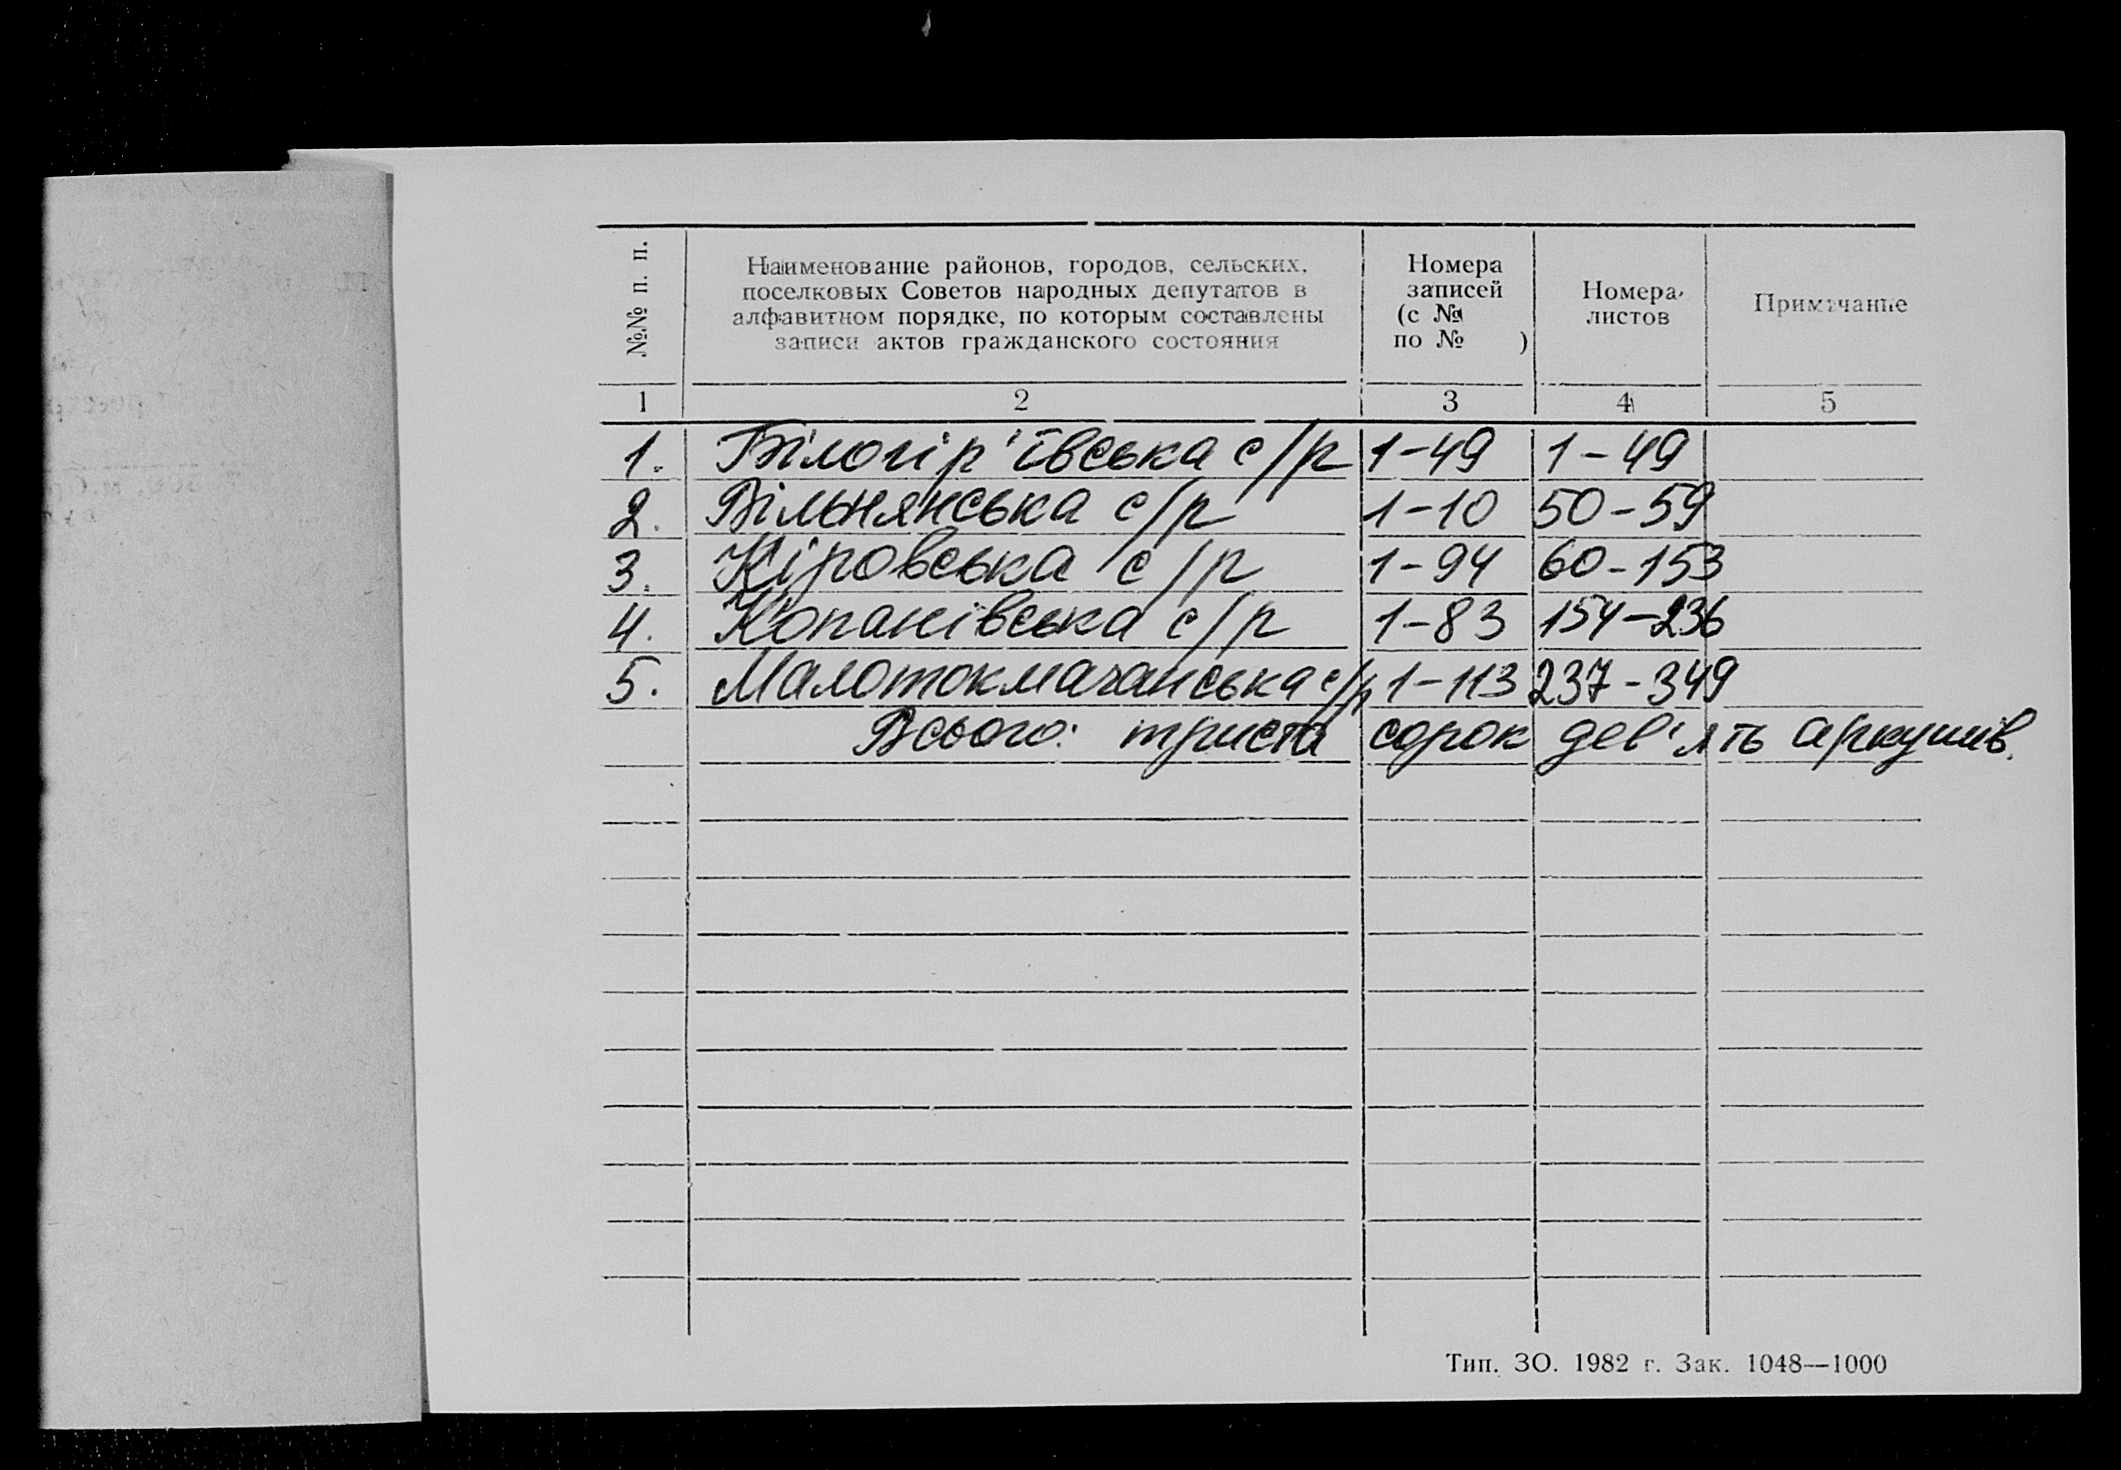 №№ п. п.
Наименование районов, городов, сельских,
поселковых Советов народных депутатов в
алфавитном порядке, по которым составлены
записи актов гражданского состояния
Номера
записей
(с №
по № )
Номера
листов
Примечание
1 2 3 4 5
1. Білогір'ївська с/р 1-49 1-49
2. Вільнянська с/р 1-10 50-59
3. Кіровська с/р 1-94 60-153
4. Копанівська с/р 1-83 154-236
5. Малотокмачанська с/р 1-113 237-349
Всього: триста сорок дев'ять аркушів.
Тип. ЗО. 1982 г. Зак. 1048—1000